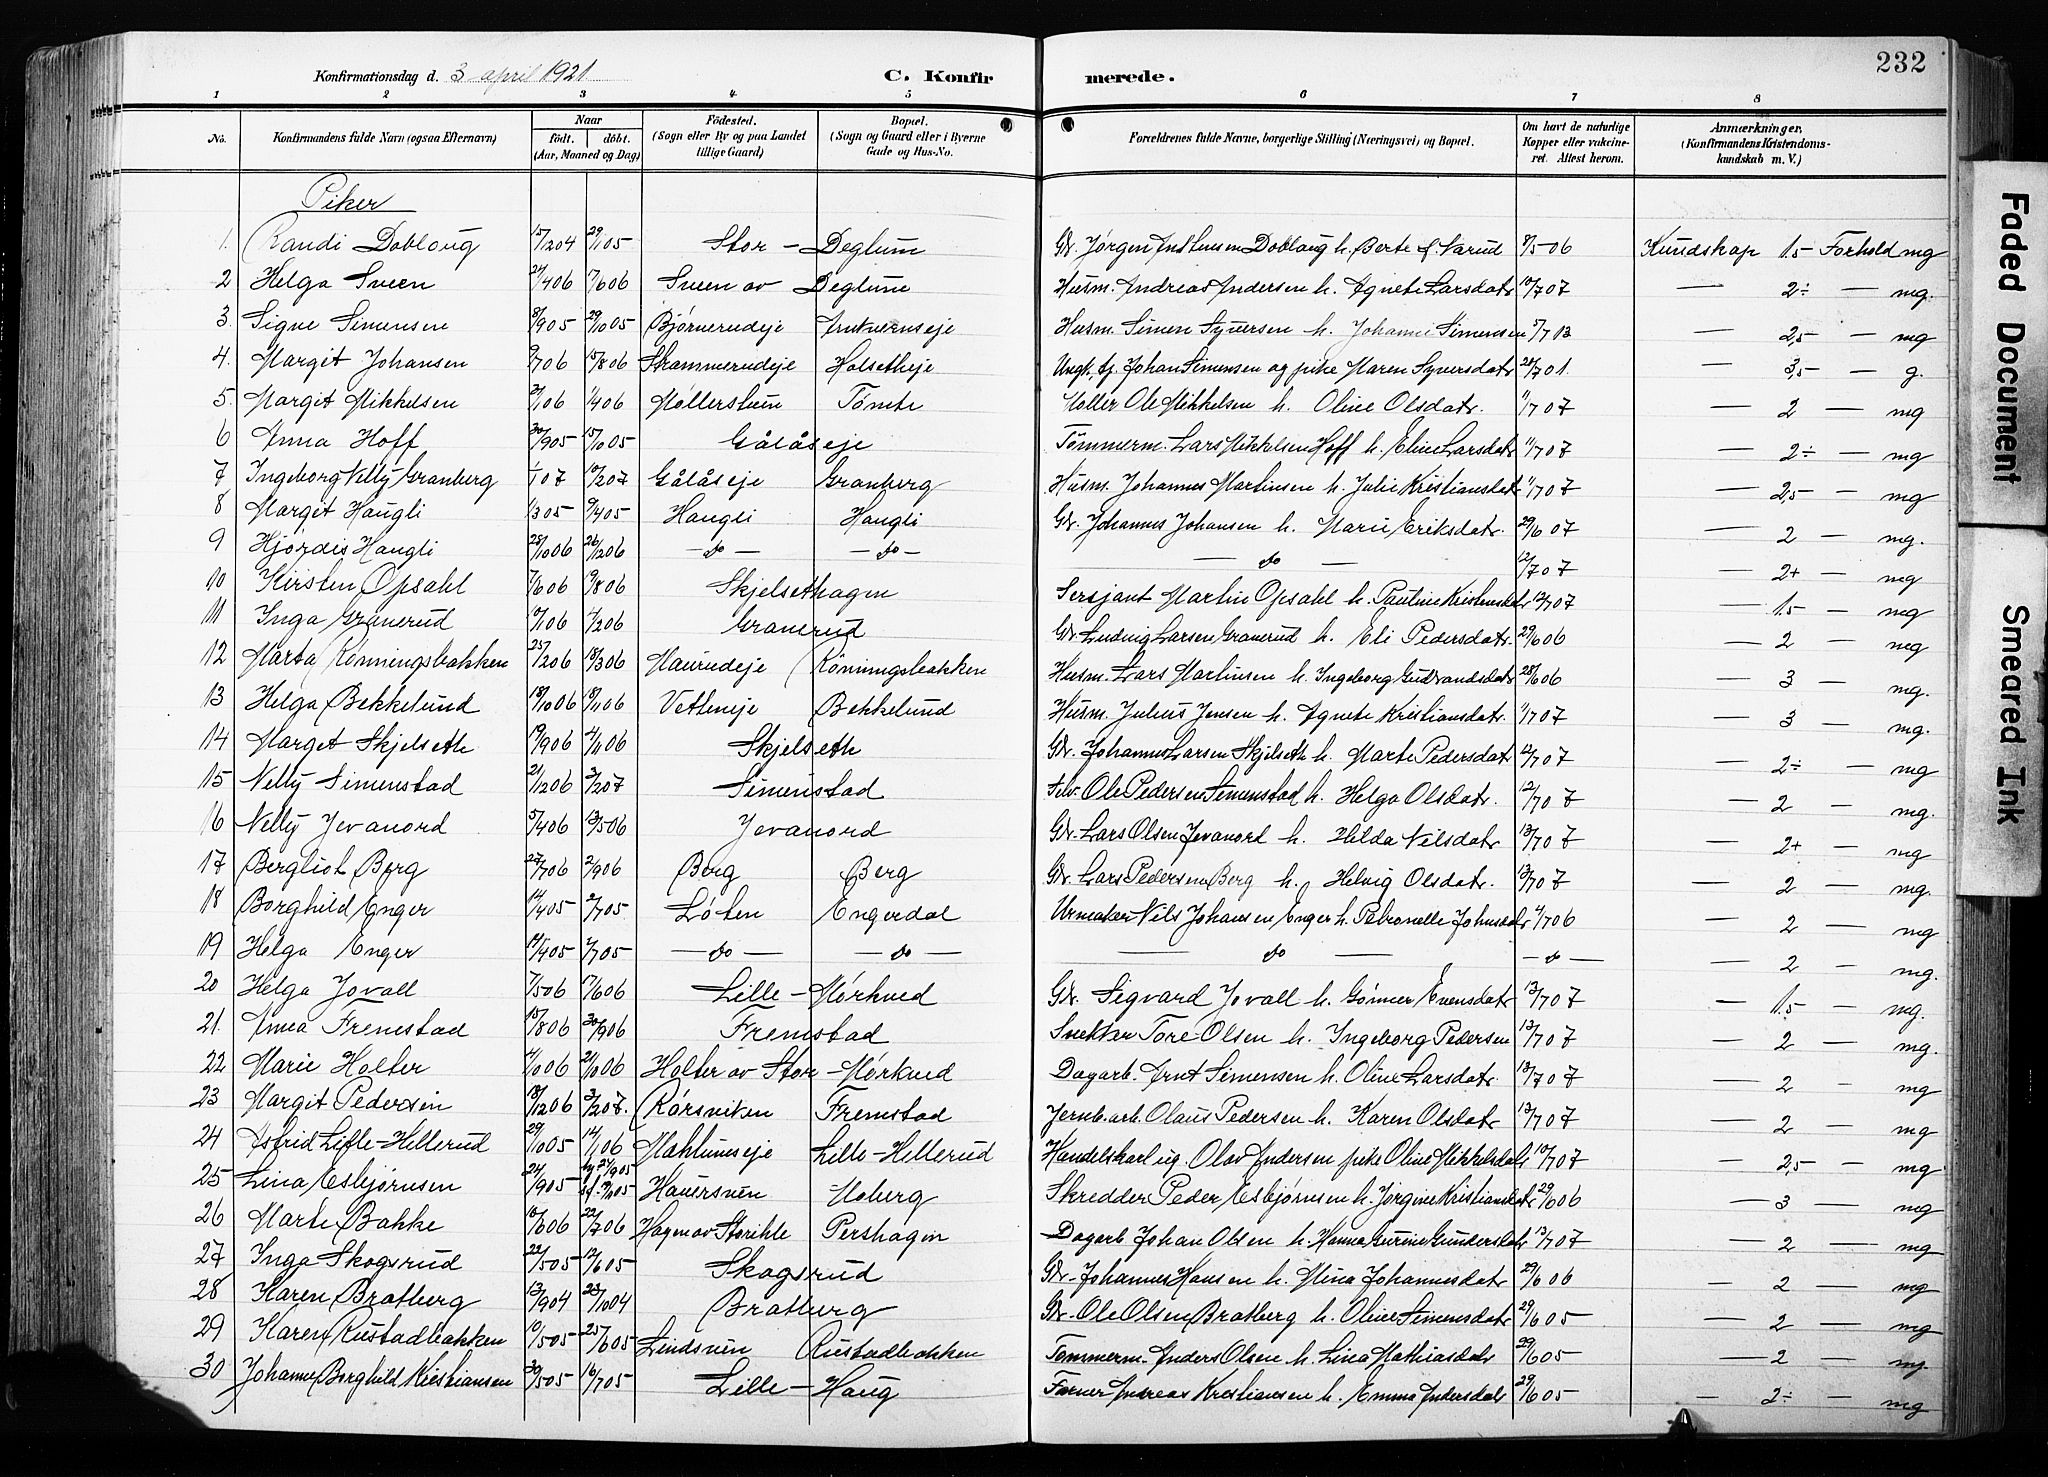 232
Konfirmationsdag d. 3 april 1921 C. Konfirmerede.
1 2 3 4 5 6 7 8
No. Konfirmandens fulde Navn (ogsaa Efternavn) Naar født. døbt. (Aar, Maaned og Dag) Fødested. (Sogn eller By og paa Landet tillige Gaard) Bopæl. (Sogn og Gaard eller i Byerne Gade og Hus-No. Forældrenes fulde Navne, borgerlige Stilling (Næringsvei) og Bopæl. Om havt de naturlige Kopper eller vakcineret. Attest herom. Anmærkninger, (Konfirmandens Kristendomskundskab m. V.)
Piker
1. Randi Doblaug 15/12 04 29/1 05 Stor-Deglum Gbr. Jørgen Doblaug h. Berte Narud /5 06 Kundskap 1.5 Forhold mg
2 Helga Sveen /4 06 7/6 06 Sveen av Deglum Husm. Andreas Andersen h. Agnete Larsdatr /7 07 — 2÷ — mg.
3. Signe Simensen 8/9 05 29/10 05 Bjørnerudeje Husm. Simen Syversen h. Johanne Simensen 5/7 13 — 2,5 — mg
4. Margit Johansen 9/7 06 15/8 06 Strammerudeje Holsetheje Ungk. tj. Johan Simensen og pike Maren Syversdatr — 3,5 — g.
5. Margit Mikkelsen /1 06 1/4 06 Møllerstuen Tømte Møller Ole Mikkelsen h. Oline Olsdatr. 11/7 07 — 2 — mg
6 Anna Hoff 30/9 05 15/10 05 Gålåseje Tømmerm. Lars Mikkelsen Hoff h. Eline Larsdatr 11/7 07 — 2÷ — mg
7 Ingeborg Nelly Granberg 1/1 07 /2 07 Gålåseje Granberg Husm. Johannes Martinsen h. Julie Kristiansdatr 11/7 07 — 2,5 — mg
8 Margit Haugli 1/3 05 9/4 05 Haugli Haugli Gbr. Johannes Johansen h. Marie Eriksdatr. 29/6 07 — 2 — mg.
9 Hjørdis Haugli 28/10 06 26/12 06 — do — — do — — do — 12/7 07 — 2+ — mg
10 Kirsten Opsahl 7/6 06 19/8 06 Skjelsethagen Sersjant Martin Opsahl h. Pauline Kristensdatr 12/7 07 — 1.5 — mg
11 Inga Granerud /1 06 4/2 06 Granerud Gbr. Ludvig Larsen Granerud h. Eli Pedersdatr. 29/6 06 — 2 — mg
12 Marta Rønningsbakken 25/2 06 18/3 06 Maurudeje Rønningsbakken Husm. Lars Martinsen h. Ingeborg Gudbrandsdatr 28/6 06 — 3 — mg.
13 Helga Bekkelund 18/10 06 18/11 06 Vetleneje Bekkelund Husm. Julius Jensen h. Agnete Kristiansdatr. 11/7 07 — 3 — mg.
14 Marget Skjelseth 19/9 06 4/11 06 Skjelseth Gbr. Johannes Larsen Skjelseth h. Marte Pedersdatr 12/7 07 — 2÷ — mg
15 Nelly Simenstad 21/12 06 3/2 07 Simenstad Selv. Ole Pedersen Simenstad h. Helga Olsdatr. 12/7 07 — 2 — mg.
16 Nelly Jevanord 5/4 06 13/5 06 Jevanord Gbr. Lars Olsen Jevanord h. Hilda Nilsdatr 13/7 07 — 2+ — mg
17 Bergliot Berg 27/7 06 2/9 06 Berg Berg Gbr. Lars Pedersen Berg h. Helvig Olsdatr. 13/7 07 — 2 — mg.
18 Borghild Enger 14/4 05 2/7 05 Løten Engerdal Urmaker Nils Johansen Enger h. Petronelle Johnsdatr 4/7 06 — 2 — mg
19 Helga Enger 14/4 05 2/7 05 — do — — do — — do — — do — — 2 — mg.
20 Helga Jovall 7/5 06 17/6 06 Lille-Mørkved Gbr. Sigvard Jovall h. Gunner Evensdatr 13/7 07 — 1.5 — mg.
21. Anna Fremstad 15/8 06 30/9 06 Fremstad Snekker Tore Olsen h. Ingeborg Pedersen 13/7 07 — 2 — mg.
22 Marie Holter 4/10 06 21/10 06 Holter av Stor-Mørkved Dagarb. Arnt Simensen h. Oline Larsdatr. 13/7 07 — 2 — mg
23 Margit Pedersen 18/12 06 3/2 07. Rørsviken Fremstad Jernb.arb. Olaus Pedersen h. Karen Olsdatr 13/7 07 — 2 — mg
24 Astrid Lille-Hellerud 29/10 05 14/1 06 Mahlumseje Lille-Hellerud Handelskarl ug. Olav Andersen pike Oline Mikkelsdatr 10/7 07 — 2,5 — mg
25 Lina Esbjørnsen 24/9 05 Hauersven Moberg Skredder Peder Esbjørnsen h. Jørgine Kristiansdatr 29/6 06 — 3 — mg
26 Marte Bakke 10/6 06 22/7 06 Hagen av Storihle Pershagen Dagarb. Johan Olsen h. Hanna Gurine Gundersdatr 13/7 07 — 2 — mg
27 Inga Skogsrud 22/5 05 12/6 05 Skogsrud Gbr. Johannes Hansen h. Mina Johannesdatr 29/6 06 — 2 — mg
28 Karen Bratberg 13/9 04 23/10 04 Bratberg Gbr. Ole Olsen Bratberg h. Oline Simensdatr 29/6 05 — 2 — mg
29 Karen Rustadbakken 10/5 05 25/6 05 Lindsven Rustadbakken Tømmerm. Anders Olsen h. Lina Mathiasdatr 29/6 05 — 2 — mg.
30 Johanne Borghild Kristiansen 30/5 05 16/7 05 Lille-Haug Andreas Kristiansen h. Emma Andersdatr 29/6 05 — 2÷ — mg
Faded Document
Smeared Ink